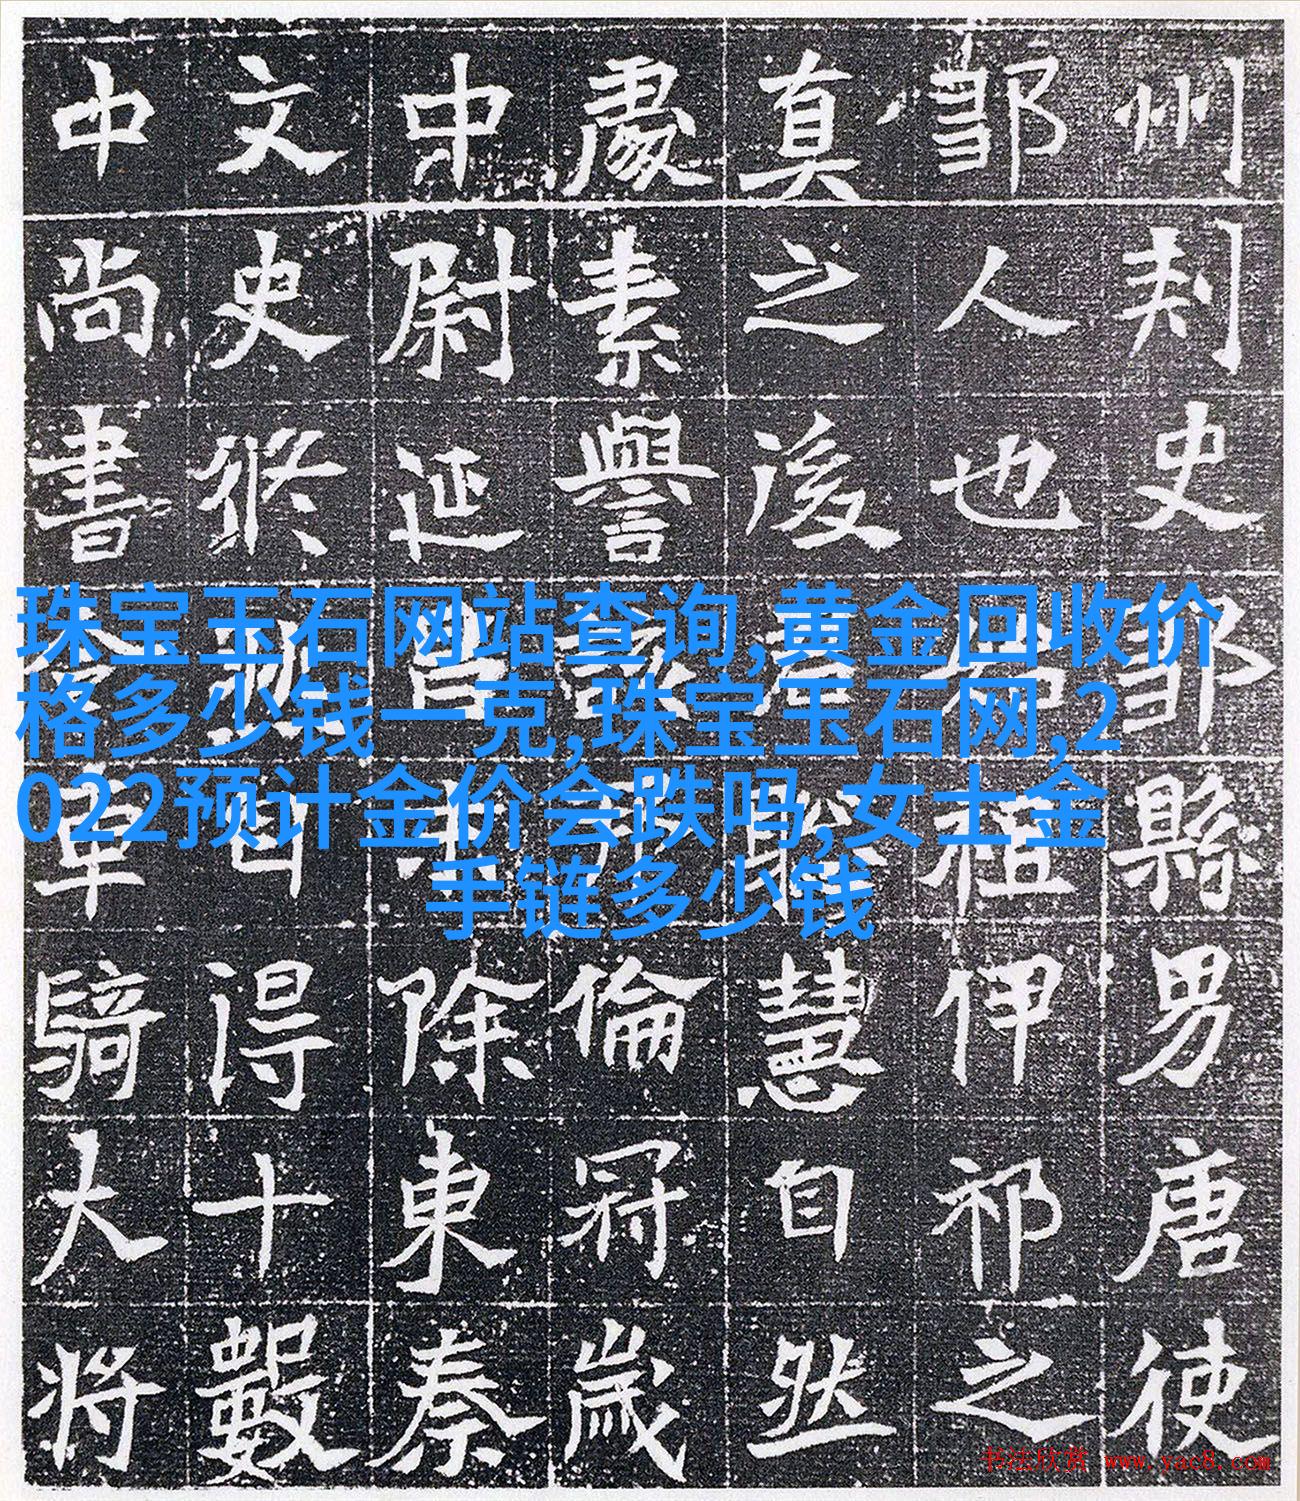 州刾史鄒縣男唐使
鄒人也伊祁之
真之後聡慧自然
處素譽倫冠歲
中尉延昌除東秦
文史脩得十數
中尚書令騎大将
珠宝玉石网站查询,黄金回收价
格多少钱一克,珠宝玉石网,2
022预计金价会跌吗,女士金
手链多少钱
书法欣赏 www.yac8.com